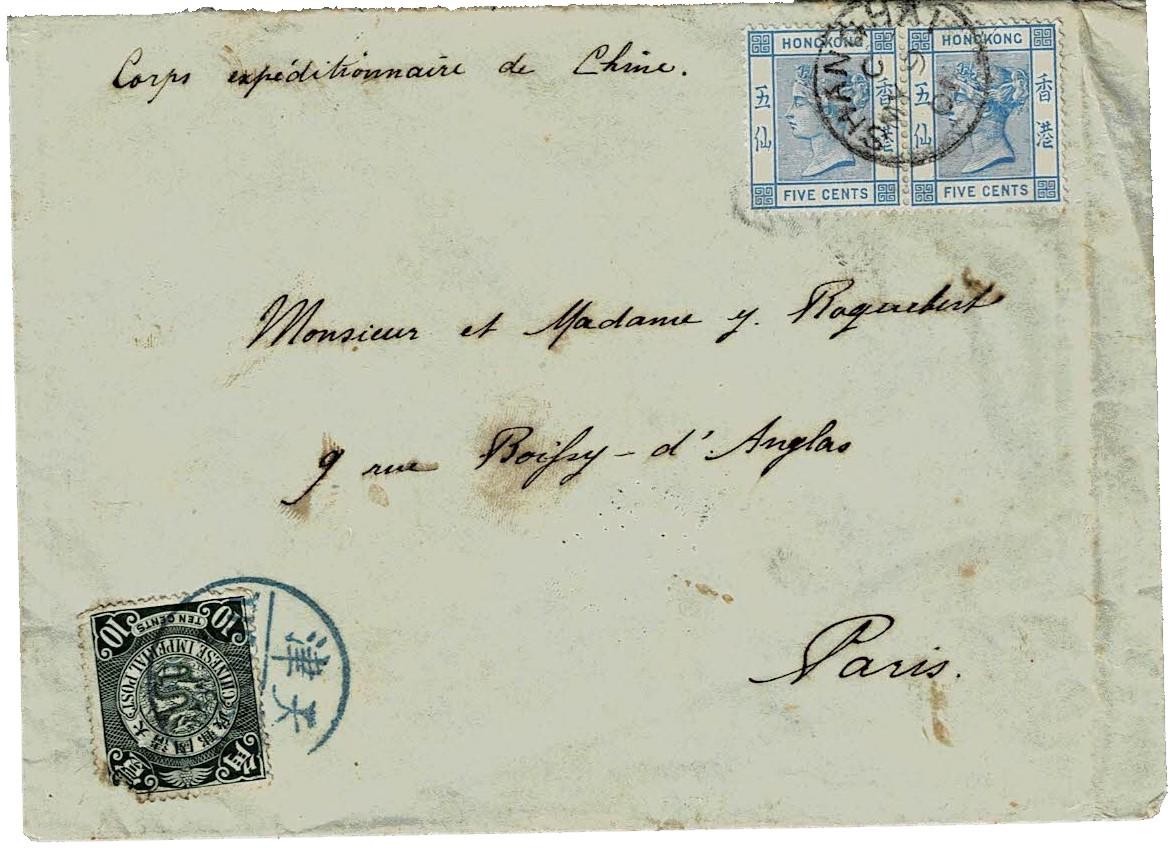 Corps expéditionnaire de Chine.
HONGKONG
五仙
香港
FIVE CENTS
HONGKONG
五仙
香港
FIVE CENTS
SHANGHAI
C
MY 9
01
Monsieur et Madame y. Roquebert
9 rue Boissy-d'Anglas
Paris.
10 TEN CENTS 10
CHINESE IMPERIAL POST
大清國郵政
壹角
天津